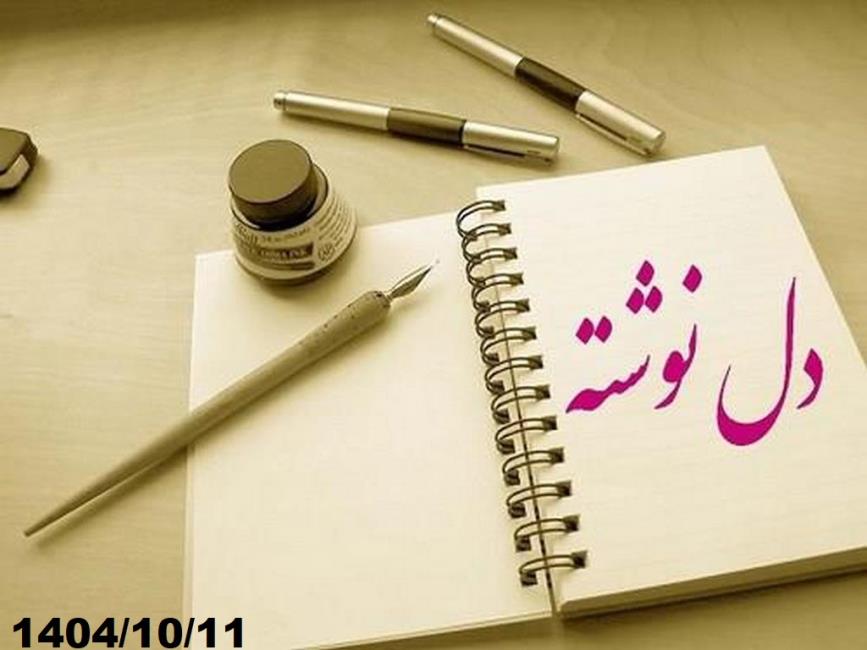 دل نوشته
1404/10/11